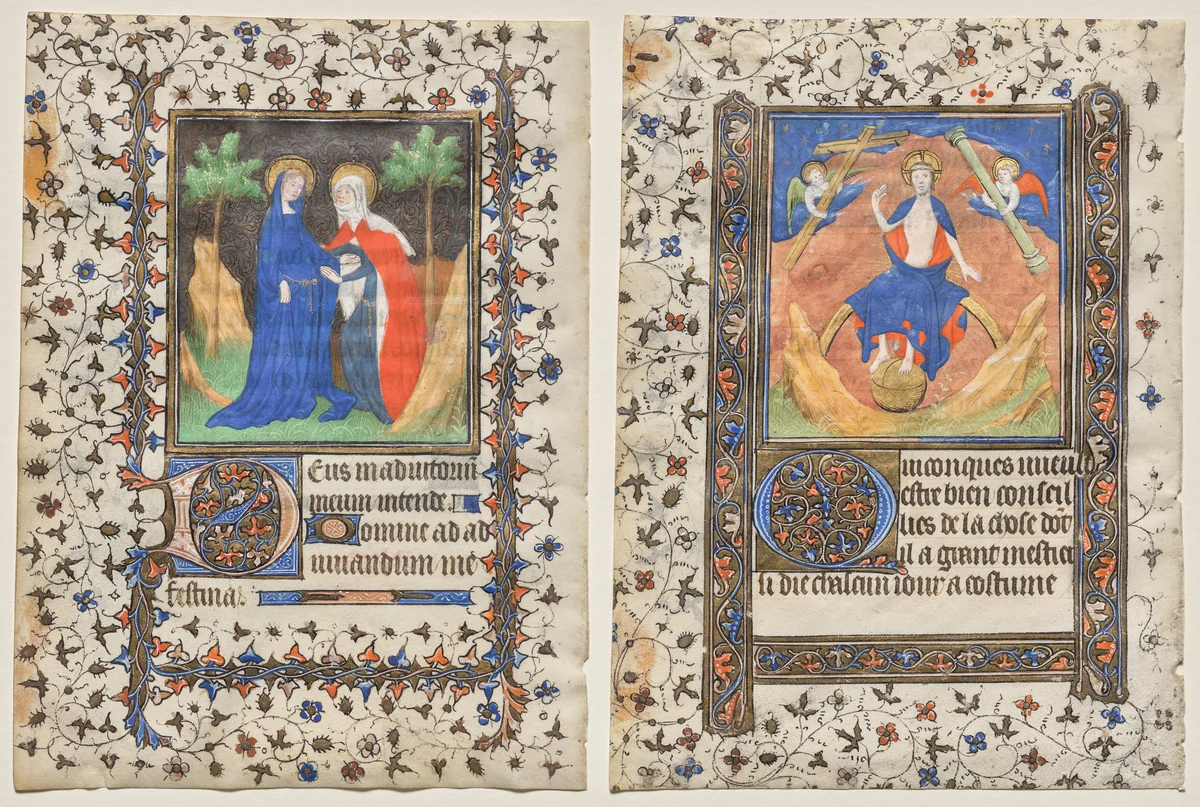 Eus in adiutoriū
meum intende.
omine ad ad
iuuandum me
festina.
uiconques uueuld
estre bien conseil
lies de la chose dōt
il a grant mestier
si die chascun iour a costume